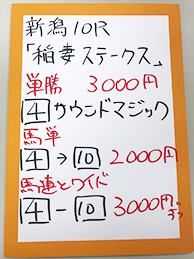 新潟10R
「稲妻ステークス」
単勝 3000円
4 サウンドマジック
馬単
4 → 10 2000円
馬連とワイド
4 - 10 3000円ずつ